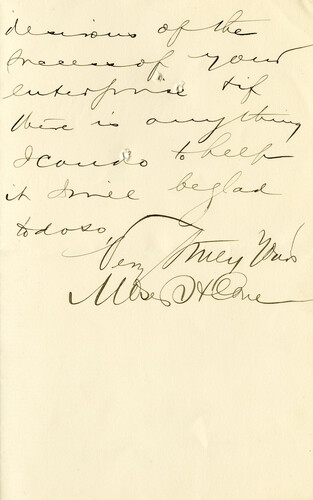 desirous of the
success of your
enterprise & if
there is anything
I can do to help
it I will be glad
to do so,
Very Truly Yours
Moses H Cone